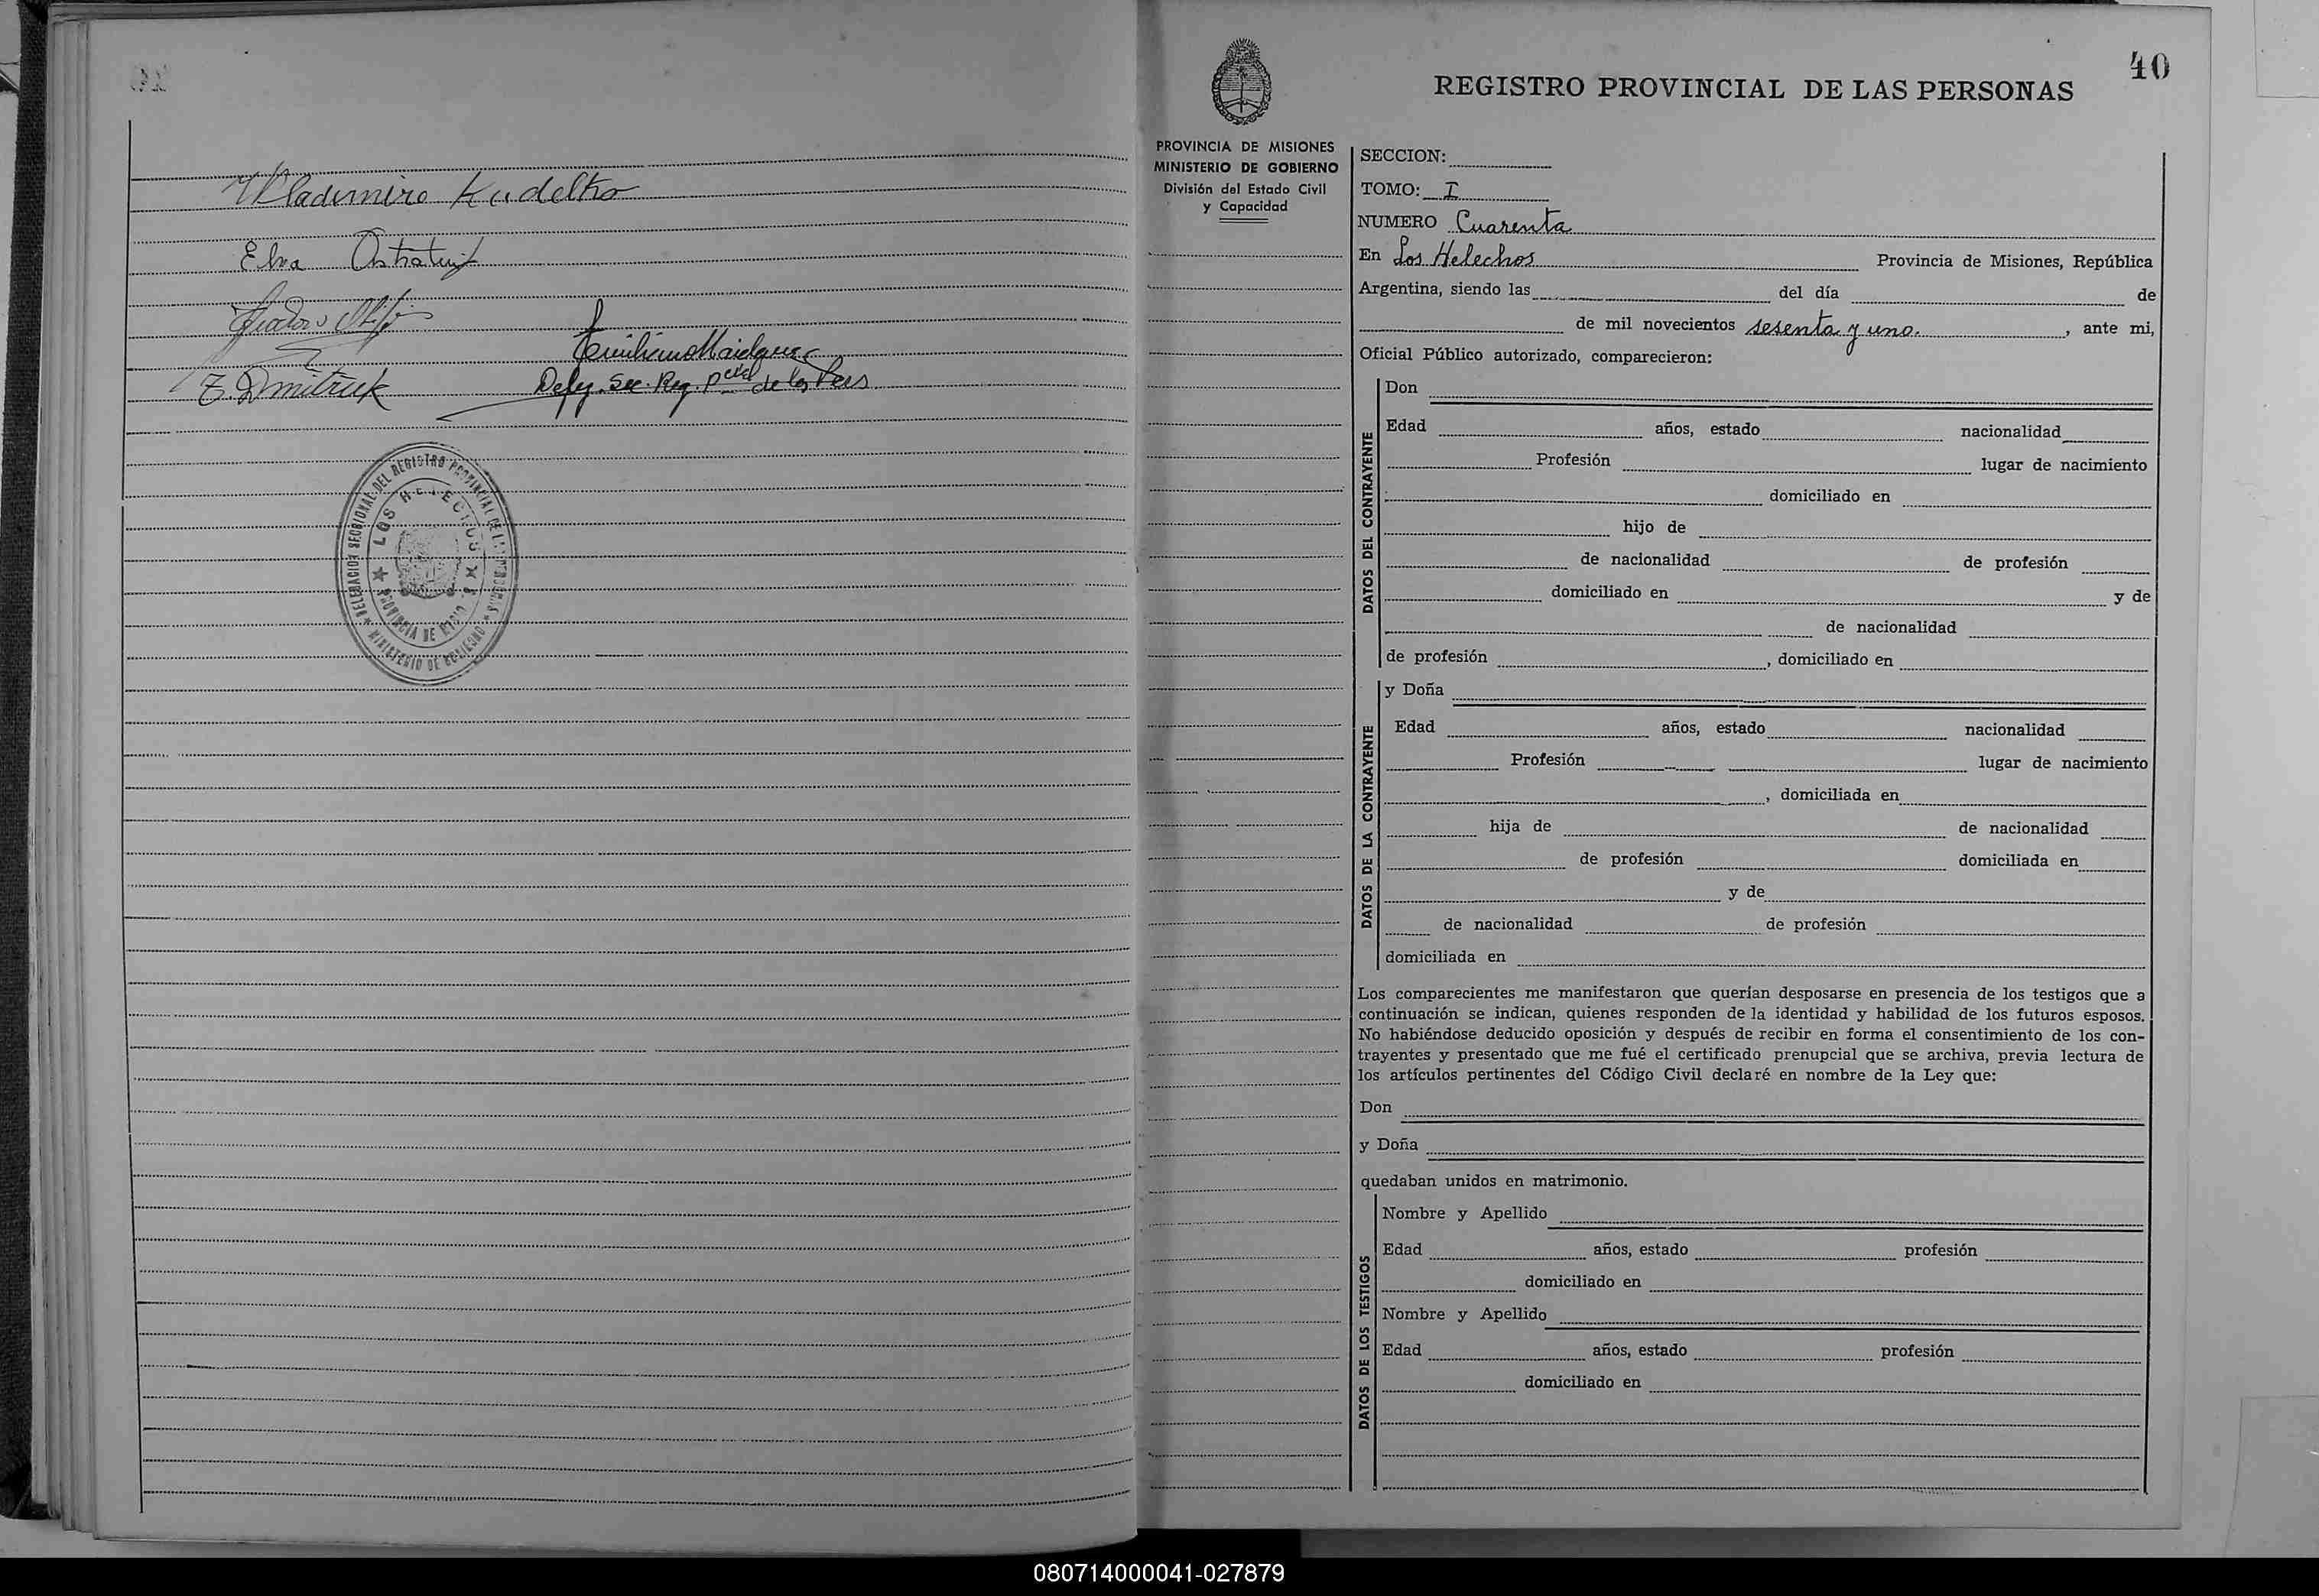 Wladimiro Kudelko
Elva
Z. Dmitruk
DELEGACION SECCIONAL DEL REGISTRO PROVINCIAL DE LAS PERSONAS
MINISTERIO DE GOBIERNO
LOS HELECHOS
PROVINCIA DE MISIONES
40
REGISTRO PROVINCIAL DE LAS PERSONAS
PROVINCIA DE MISIONES
MINISTERIO DE GOBIERNO
División del Estado Civil
y Capacidad
SECCION:
TOMO: I
NUMERO Cuarenta
En Los Helechos Provincia de Misiones, República
Argentina, siendo las del día de
de mil novecientos sesenta y uno. , ante mi,
Oficial Público autorizado, comparecieron:
DATOS DEL CONTRAYENTE
Don
Edad años, estado nacionalidad
Profesión lugar de nacimiento
domiciliado en
hijo de
de nacionalidad de profesión
domiciliado en y de
de nacionalidad
de profesión , domiciliado en
DATOS DE LA CONTRAYENTE
y Doña
Edad años, estado nacionalidad
Profesión lugar de nacimiento
, domiciliada en
hija de de nacionalidad
de profesión domiciliada en
y de
de nacionalidad de profesión
domiciliada en
Los comparecientes me manifestaron que querían desposarse en presencia de los testigos que a
continuación se indican, quienes responden de la identidad y habilidad de los futuros esposos.
No habiéndose deducido oposición y después de recibir en forma el consentimiento de los con-
trayentes y presentado que me fué el certificado prenupcial que se archiva, previa lectura de
los artículos pertinentes del Código Civil declaré en nombre de la Ley que:
Don
y Doña
quedaban unidos en matrimonio.
DATOS DE LOS TESTIGOS
Nombre y Apellido
Edad años, estado profesión
domiciliado en
Nombre y Apellido
Edad años, estado profesión
domiciliado en
080714000041-027879